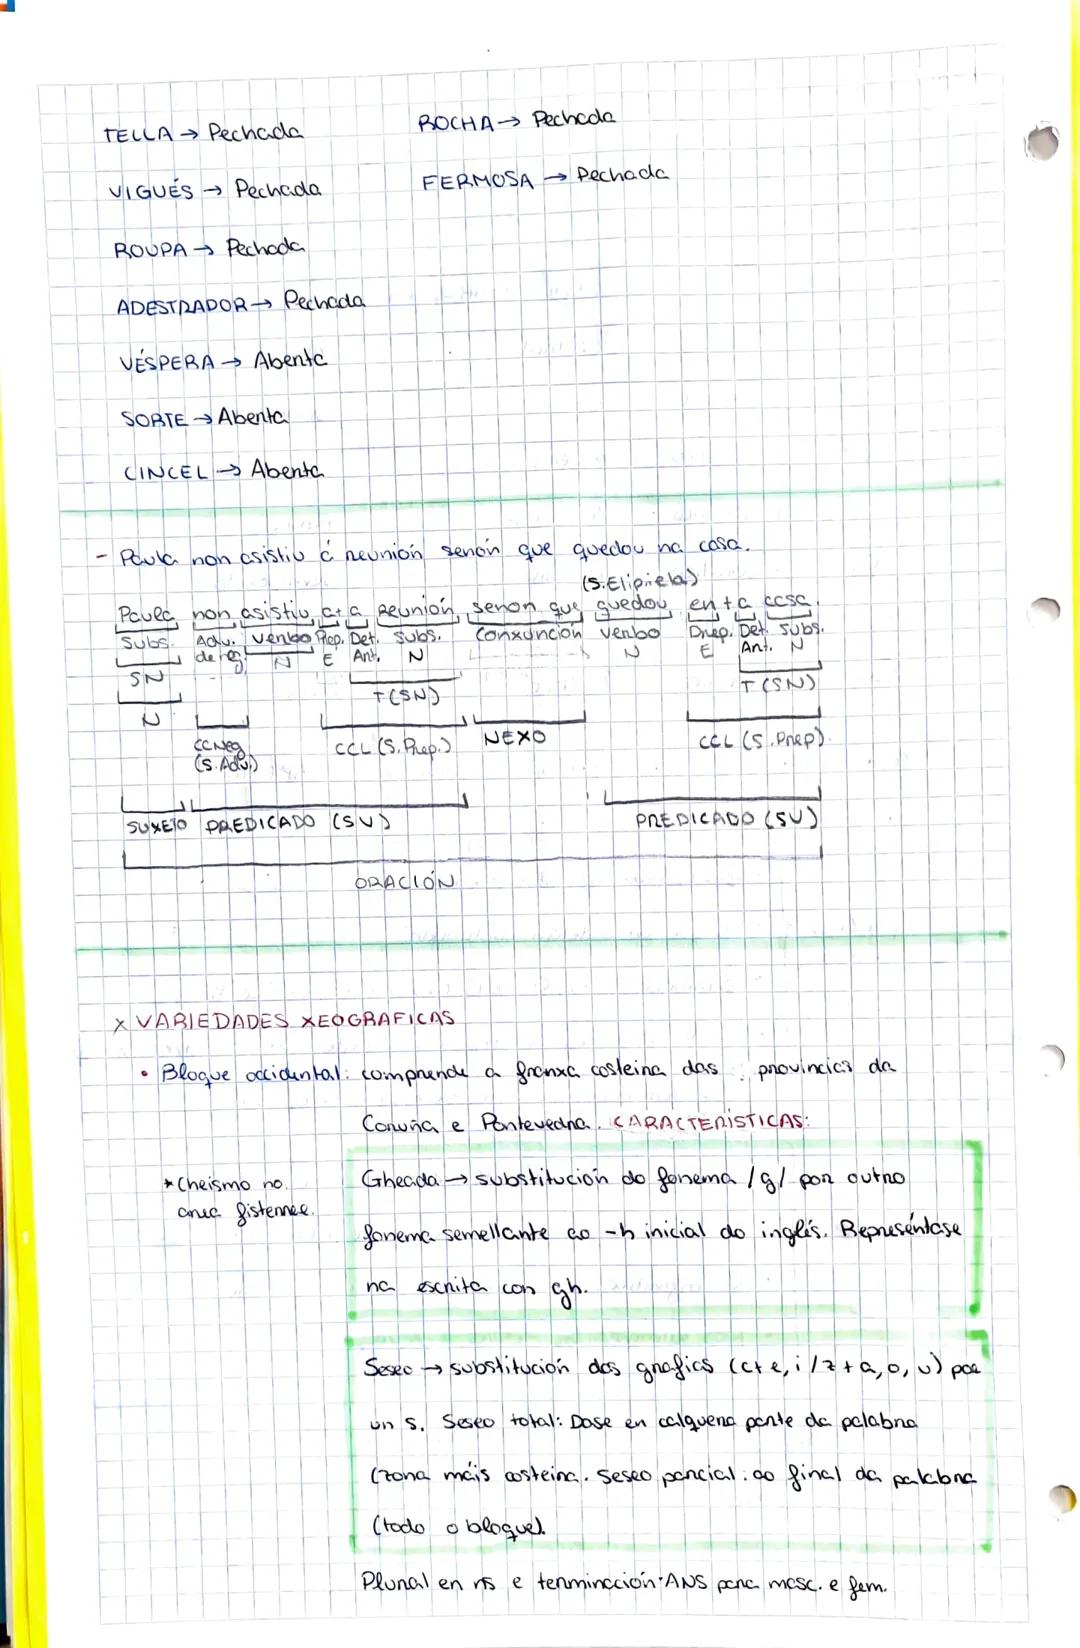 TELLA → Pechada
ROCHA → Pechada
VIGUÉS → Pechada
FERMOSA → Pechada
ROUPA → Pechada
ADESTRADOR → Pechada
VÉSPERA → Aberta
SORTE → Aberta
CINCEL → Aberta
- Paula non asistiu á reunión senón que quedou na casa.
(S. Elíptico)
Paula non asistiu a+a Reunión senon que quedou en+a casa.
Subs. Adv. verbo Prep. Det. Subs. Conxunción verbo Prep. Det. Subs.
de neg. N E Art. N N E Art. N
SN T(SN) T(SN)
N
CCNeg CCL (S.Prep.) NEXO CCL (S.Prep)
(S.Adv.)
SUXEIO PREDICADO (SV) PREDICADO (SV)
ORACIÓN
x VARIEDADES XEOGRAFICAS
• Bloque occidental: comprende a franxa costeira das provincias da
Coruña e Pontevedra. CARACTERÍSTICAS:
* Cheísmo no
area fisterree.
Gheada → substitución do fonema /g/ por outro
fonema semellante ao -h inicial do inglés. Represéntase
na escrita con gh.
Seseo → substitución das grafías (c+e, i / z+a, o, u) por
un s. Seseo total: Dase en calquera parte da palabra
(zona máis costeira. Seseo parcial: ao final da palabra
(todo o bloque).
Plural en ns e terminación -ANS para masc. e fem.